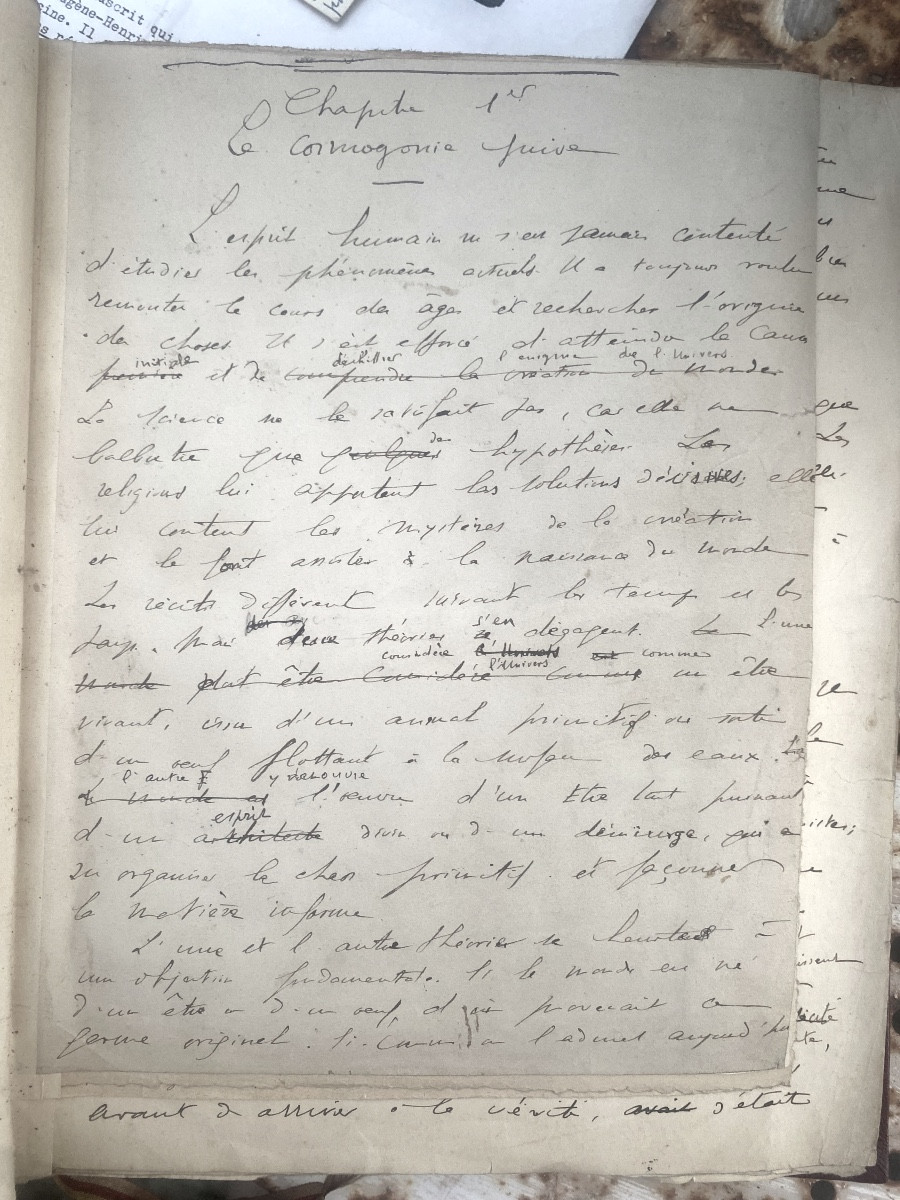 uscrit qui
ugène-Henri
sine. Il
Chapitre 1er
La Cosmogonie juive
L'esprit humain ne s'est jamais contenté
d'étudier les phénomènes actuels. Il a toujours voulu
remonter le cours des âges et rechercher l'origine
des choses. Il s'est efforcé d'atteindre la cause
initiale déchiffrer l'enigme de l'Univers
première et de comprendre la création du monde.
La Science ne le satisfait pas, car elle ne
des
balbutie que quelques hypothèses. Les
religions lui apportent les solutions décisives; elles
lui content les mystères de la création
et le font assister à la naissance du monde
Les récits diffèrent suivant les temps et les
s'en
pays. Mais deux théories se dégagent. Le L'une
considère l'Univers est comme
l'Univers
monde doit être considéré comme un être
vivant, issu d'un animal primitif ou sorti
d'un oeuf flottant à la surface des eaux.
l'autre y retrouve
Le monde est l'oeuvre d'un Etre tout puissant
esprit
d'un architecte divin ou d'un démiurge, qui a
su organiser le chaos primitif et façonner
la matière informe.
L'une et l'autre théories se heurtent à
une objection fondamentale. Si le monde est né
d'un être ou d'un oeuf, d'où provenait ce
germe originel. Si comme on l'admet aujourd'hui
avant d'arriver à la vérité, avait d'était
que
Les